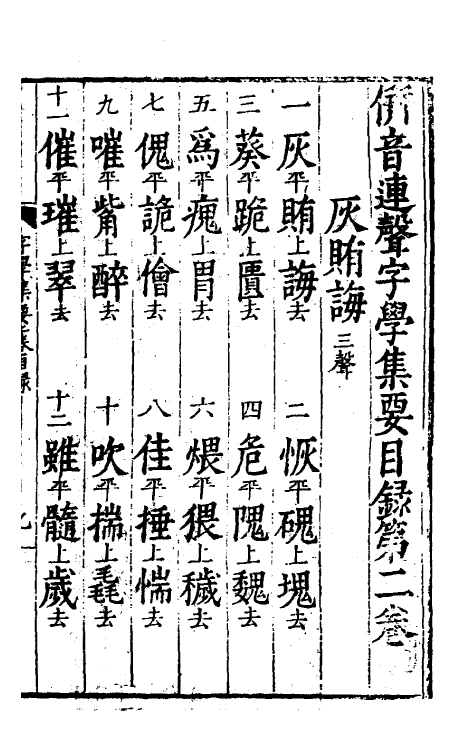 併音連聲字學集要目録第二卷
灰賄誨三聲
一 灰平賄上誨去 二 恢平磈上塊去
三 葵平跪上匱去 四 危平隗上魏去
五 爲平瘣上胃去 六 煨平猥上穢去
七 傀平詭上儈去 八 佳平捶上惴去
九 嗺平觜上醉去 十 吹平揣上毳去
十一 催平璀上翠去 十二 雖平髓上歲去
字學集要卷目録